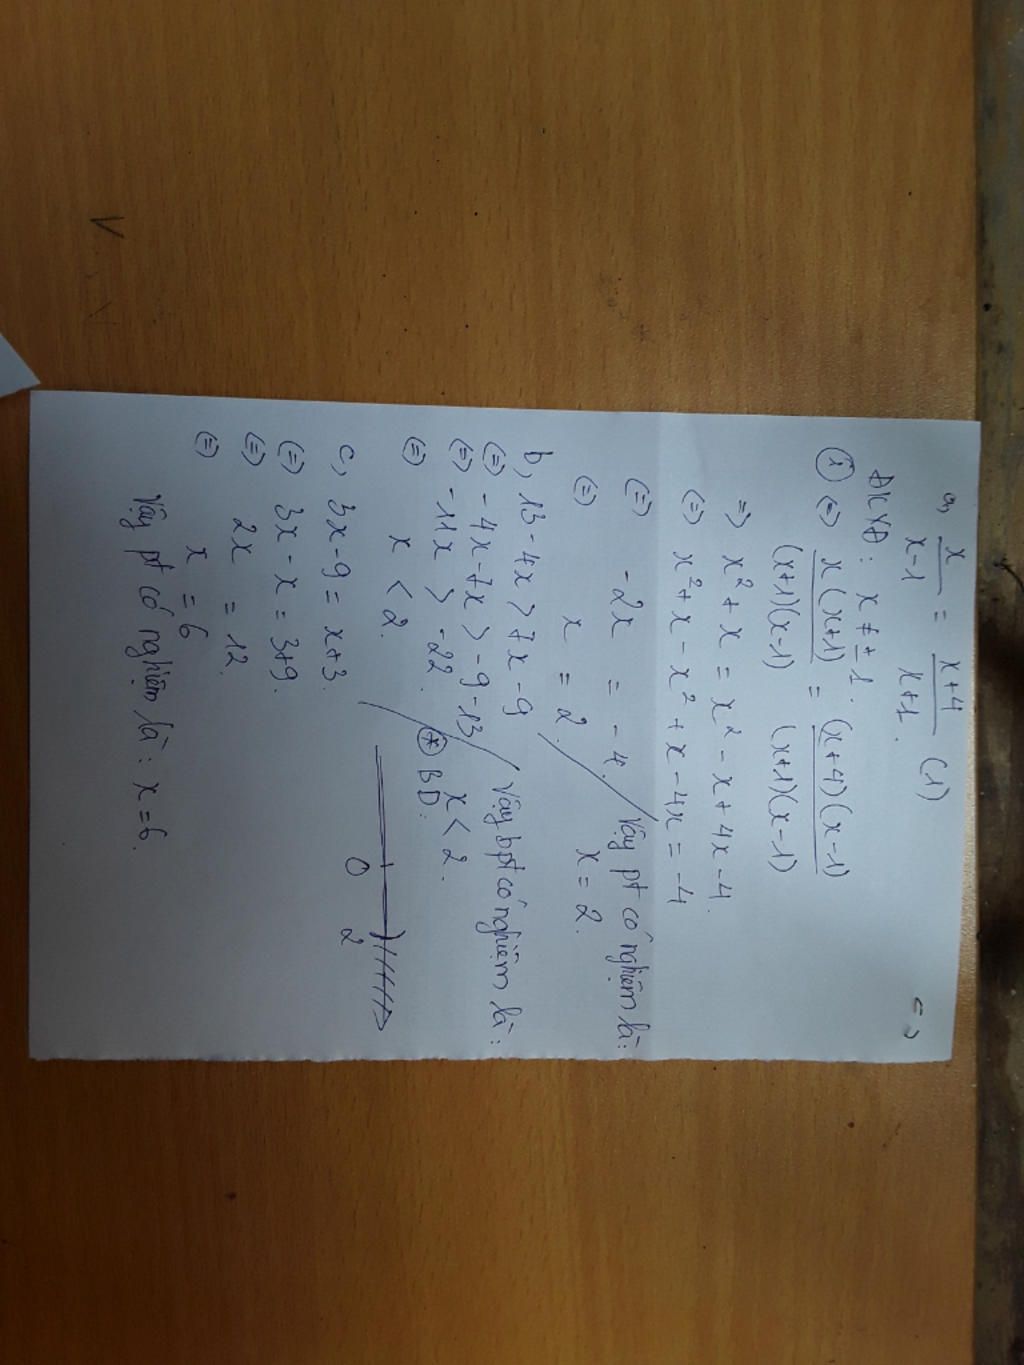 a, x/x-1 = x+4/x+1. (1)
ĐKXĐ: x ≠ ±1.
① (=) x(x+1)/(x+1)(x-1) = (x+4)(x-1)/(x+1)(x-1)
=> x² + x = x² - x + 4x - 4.
(=) x² + x - x² + x - 4x = -4
(=) -2x = -4.
(=) x = 2.
Vậy pt có nghiệm là:
x = 2.
b, 13 - 4x > 7x - 9
(=) -4x - 7x > -9 - 13
(=) -11x > -22.
(=) x < 2.
Vậy bpt có nghiệm là:
x < 2.
* BD:
0 2
c, 3x - 9 = x + 3.
(=) 3x - x = 3+9.
(=) 2x = 12.
(=) x = 6
Vậy pt có nghiệm là: x = 6.